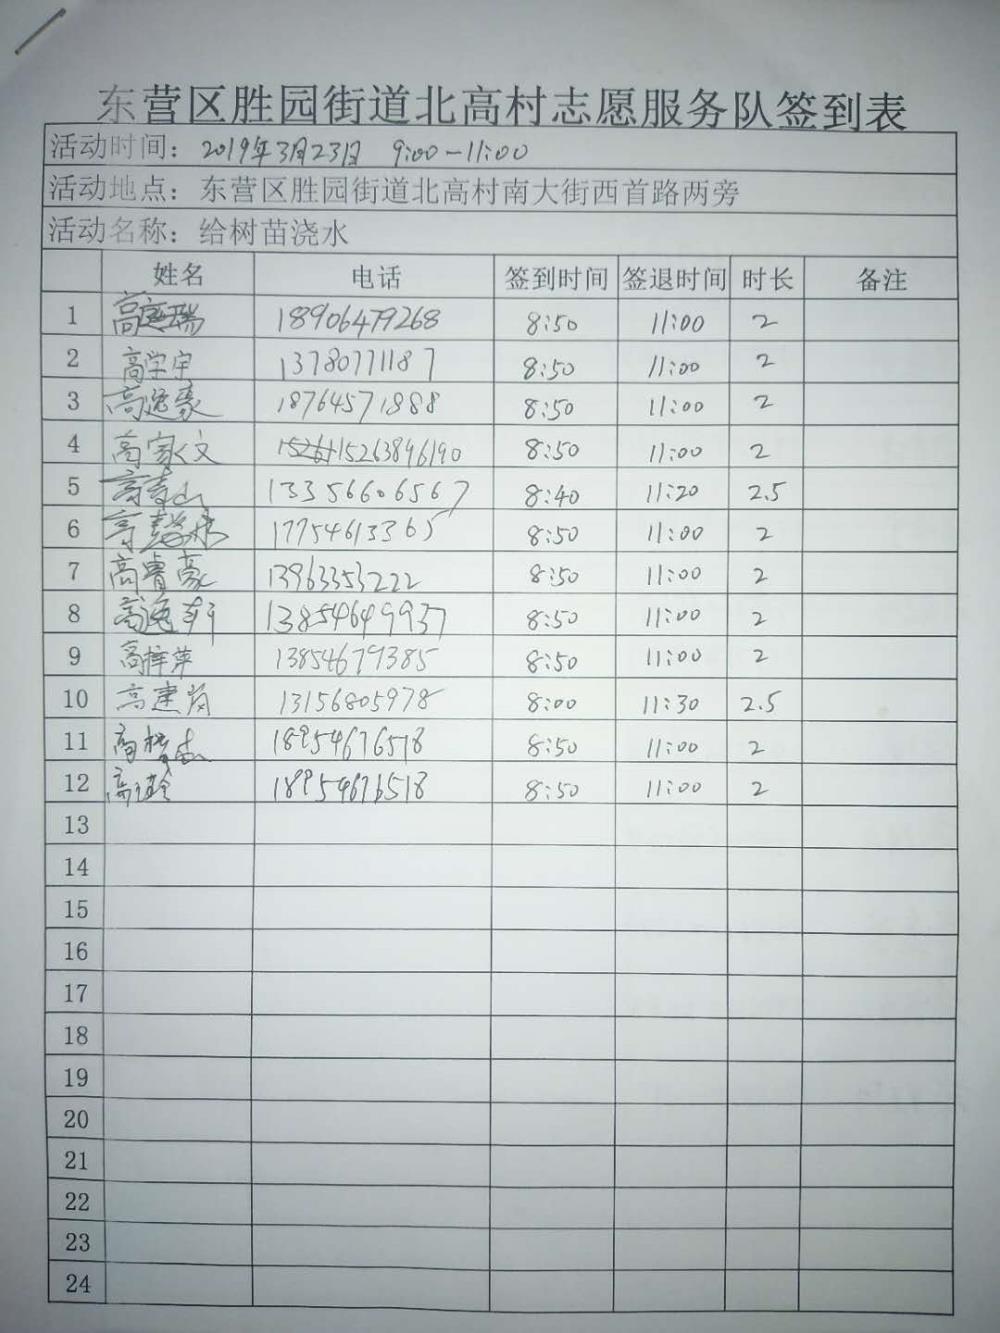 东营区胜园街道北高村志愿服务队签到表
活动时间：2019年3月23日 9:00-11:00
活动地点：东营区胜园街道北高村南大街西首路两旁
活动名称：给树苗浇水
姓名 电话 签到时间 签退时间 时长 备注
1 高 瑞 18906479268 8:50 11:00 2
2 高学宇 13780771187 8:50 11:00 2
3 高逸豪 18764571888 8:50 11:00 2
4 高家文 15263896190 8:50 11:00 2
5 高青山 13356606567 8:40 11:20 2.5
6 高 17754613365 8:50 11:00 2
7 高睿豪 13963353222 8:50 11:00 2
8 高逸轩 13854649937 8:50 11:00 2
9 高梓萍 13854679385 8:50 11:00 2
10 高建岗 13156805978 8:00 11:30 2.5
11 高 18954676518 8:50 11:00 2
12 高 18954676518 8:50 11:00 2
13
14
15
16
17
18
19
20
21
22
23
24